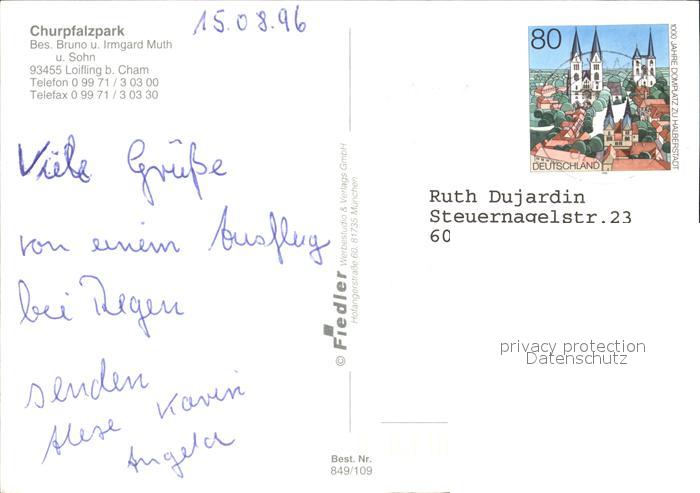 15.08.96
Churpfalzpark
Bes. Bruno u. Irmgard Muth
u. Sohn
93455 Loifling b. Cham
Telefon 0 99 71 / 3 03 00
Telefax 0 99 71 / 3 03 30
Viele Grüße
von einem Ausflug
bei Regen
senden
Karin
Angela
© Fiedler Werbestudio & Verlags GmbH
Hofangerstraße 60, 81735 München
Best. Nr.
849/109
80
1000 JAHRE DOMPLATZ ZU HALBERSTADT
DEUTSCHLAND
Ruth Dujardin
Steuernagelstr.23
60
privacy protection
Datenschutz